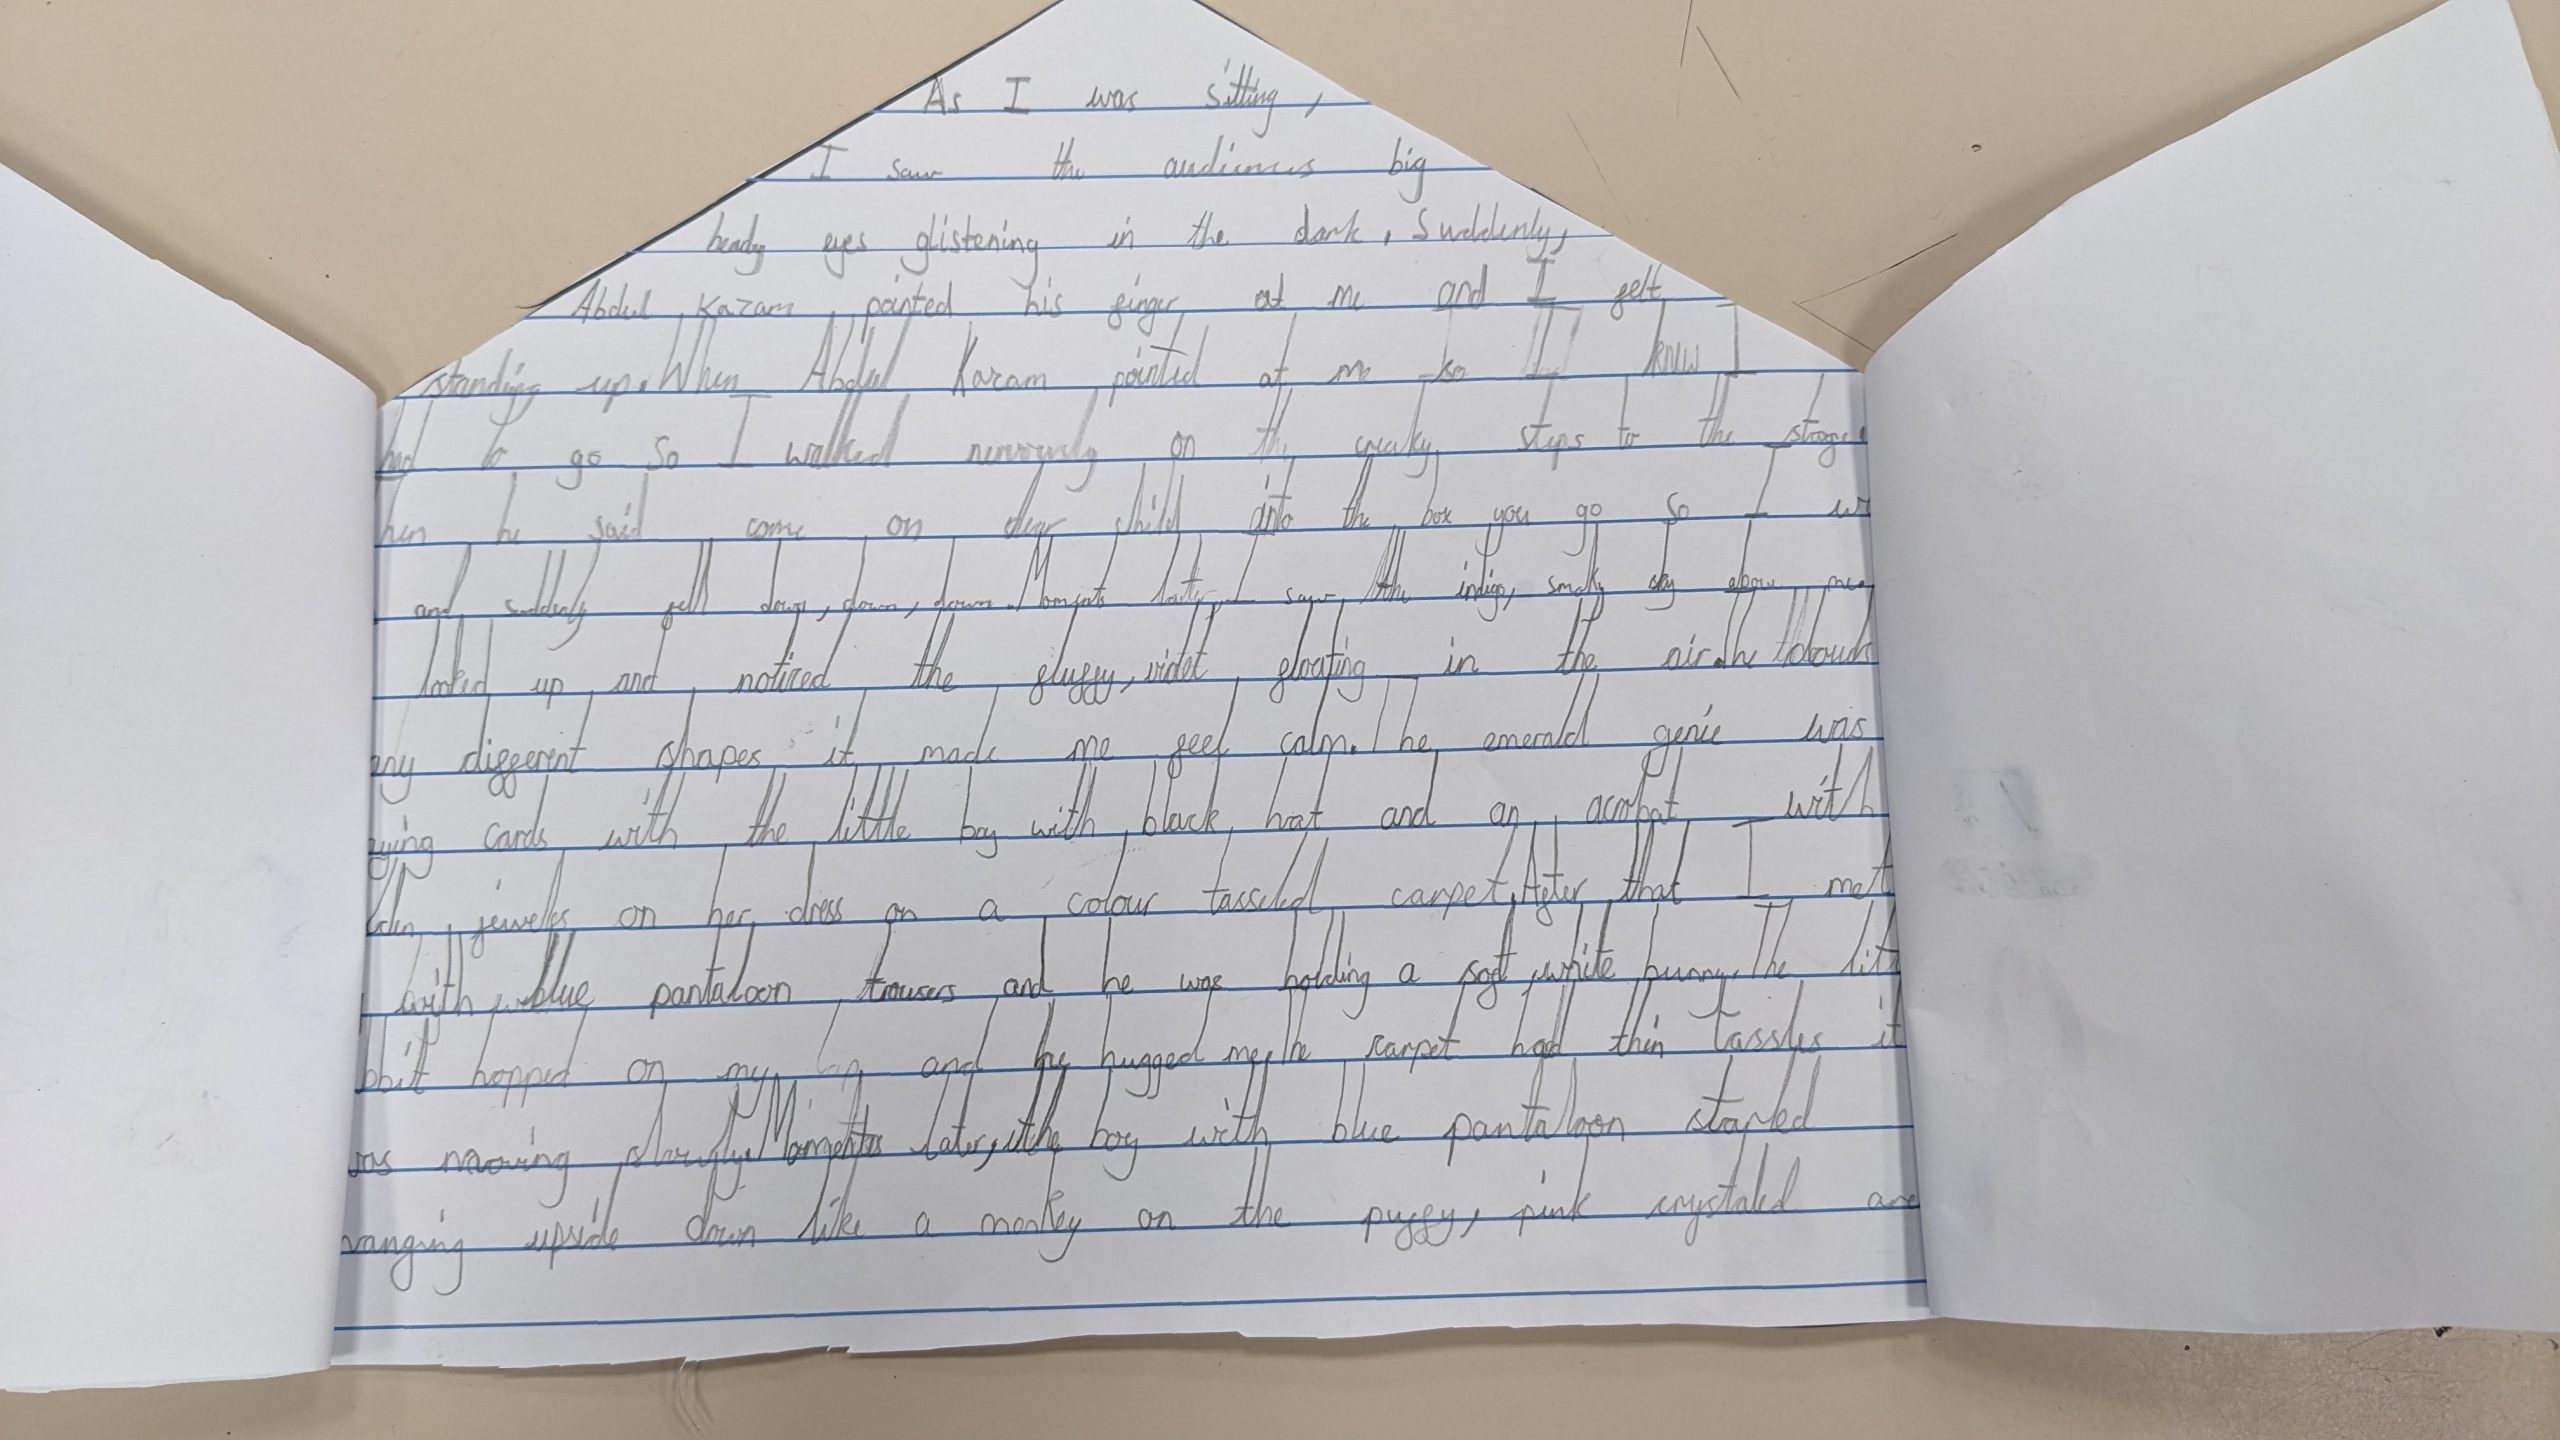 As I was sitting,
I saw the audiences big
beady eyes glistening in the dark. Suddenly,
Abdul Kazam pointed his finger at me and I felt
standing up. When Abdul Kazam pointed at me so I knew I
had to go so I walked nervously on the creaky steps to the stage
hen he said come on dear child into the box you go so I w
and suddenly fell down, down, down. Moments later, I saw the indigo, smoky sky above me.
looked up and noticed the fluffy, violet floating in the air. The
ny different shapes it made me feel calm. The emerald genie was
ying cards with the little boy with black hat and an acrobat with
lden jewelles on her dress on a colour tasseled carpet. After that I met
with blue pantaloon trousers and he was holding a soft, white bunny. The litt
bbit hopped on my lap and he hugged me. The carpet had thin tassles it
was moving Momentes later, the boy with blue pantaloon started
hanging upside down like a monkey on the puffy, pink crystaled and